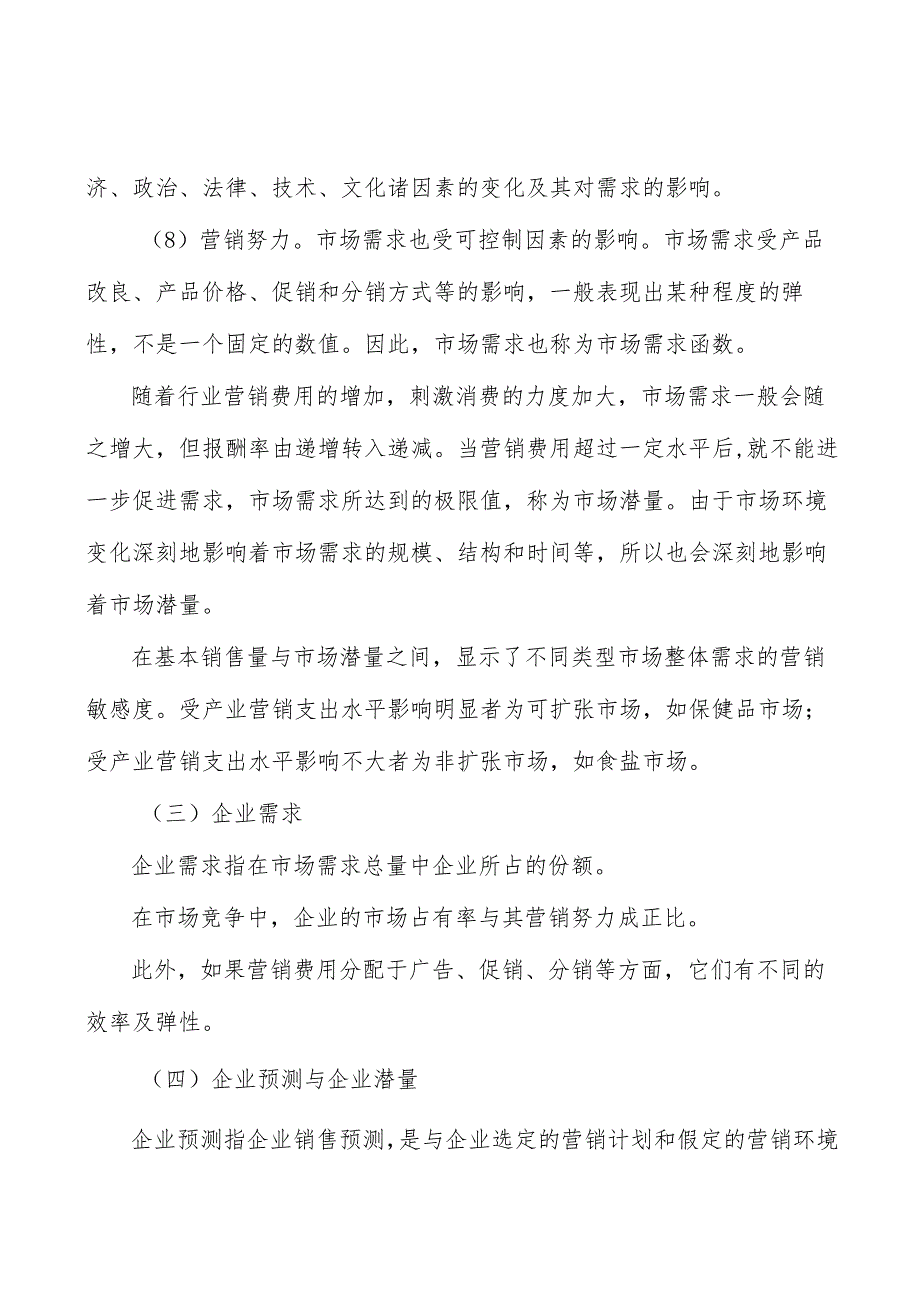 济、政治、法律、技术、文化诸因素的变化及其对需求的影响。
（8）营销努力。市场需求也受可控制因素的影响。市场需求受产品
改良、产品价格、促销和分销方式等的影响，一般表现出某种程度的弹
性，不是一个固定的数值。因此，市场需求也称为市场需求函数。
随着行业营销费用的增加，刺激消费的力度加大，市场需求一般会随
之增大，但报酬率由递增转入递减。当营销费用超过一定水平后,就不能进
一步促进需求，市场需求所达到的极限值，称为市场潜量。由于市场环境
变化深刻地影响着市场需求的规模、结构和时间等，所以也会深刻地影响
着市场潜量。
在基本销售量与市场潜量之间，显示了不同类型市场整体需求的营销
敏感度。受产业营销支出水平影响明显者为可扩张市场，如保健品市场；
受产业营销支出水平影响不大者为非扩张市场，如食盐市场。
（三）企业需求
企业需求指在市场需求总量中企业所占的份额。
在市场竞争中，企业的市场占有率与其营销努力成正比。
此外，如果营销费用分配于广告、促销、分销等方面，它们有不同的
效率及弹性。
（四）企业预测与企业潜量
企业预测指企业销售预测,是与企业选定的营销计划和假定的营销环境